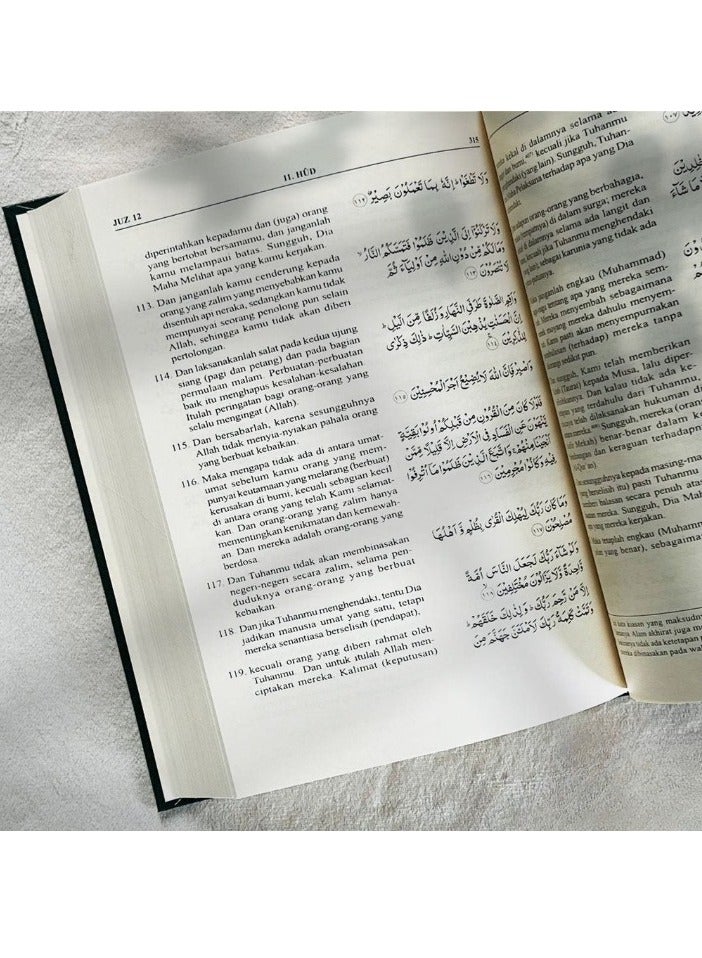 JUZ 12
11. HŪD
315
diperintahkan kepadamu dan (juga) orang
yang bertobat bersamamu, dan janganlah
kamu melampaui batas. Sungguh, Dia
Maha Melihat apa yang kamu kerjakan.
113. Dan janganlah kamu cenderung kepada
orang yang zalim yang menyebabkan kamu
disentuh api neraka, sedangkan kamu tidak
mempunyai seorang penolong pun selain
Allah, sehingga kamu tidak akan diberi
pertolongan.
114. Dan laksanakanlah salat pada kedua ujung
siang (pagi dan petang) dan pada bagian
permulaan malam. Perbuatan-perbuatan
baik itu menghapus kesalahan-kesalahan.
Itulah peringatan bagi orang-orang yang
selalu mengingat (Allah).
115. Dan bersabarlah, karena sesungguhnya
Allah tidak menyia-nyiakan pahala orang
yang berbuat kebaikan.
116. Maka mengapa tidak ada di antara umat-
umat sebelum kamu orang yang mem-
punyai keutamaan yang melarang (berbuat)
kerusakan di bumi, kecuali sebagian kecil
di antara orang yang telah Kami selamat-
kan. Dan orang-orang yang zalim hanya
mementingkan kenikmatan dan kemewah-
an. Dan mereka adalah orang-orang yang
berdosa.
117. Dan Tuhanmu tidak akan membinasakan
negeri-negeri secara zalim, selama pen-
duduknya orang-orang yang berbuat
kebaikan.
118. Dan jika Tuhanmu menghendaki, tentu Dia
jadikan manusia umat yang satu, tetapi
mereka senantiasa berselisih (pendapat),
119. kecuali orang yang diberi rahmat oleh
Tuhanmu. Dan untuk itulah Allah men-
ciptakan mereka. Kalimat (keputusan)
وَلَا تَطْغَوْاۗ اِنَّهٗ بِمَا تَعْمَلُوْنَ بَصِيْرٌ ١١٢
وَلَا تَرْكَنُوْٓا اِلَى الَّذِيْنَ ظَلَمُوْا فَتَمَسَّكُمُ النَّارُۙ
وَمَا لَكُمْ مِّنْ دُوْنِ اللّٰهِ مِنْ اَوْلِيَاۤءَ ثُمَّ
لَا تُنْصَرُوْنَ ١١٣
وَاَقِمِ الصَّلٰوةَ طَرَفَيِ النَّهَارِ وَزُلَفًا مِّنَ الَّيْلِۗ
اِنَّ الْحَسَنٰتِ يُذْهِبْنَ السَّيِّاٰتِۗ ذٰلِكَ ذِكْرٰى
لِلذّٰكِرِيْنَ ١١٤
وَاصْبِرْ فَاِنَّ اللّٰهَ لَا يُضِيْعُ اَجْرَ الْمُحْسِنِيْنَ ١١٥
فَلَوْلَا كَانَ مِنَ الْقُرُوْنِ مِنْ قَبْلِكُمْ اُولُوْا بَقِيَّةٍ
يَّنْهَوْنَ عَنِ الْفَسَادِ فِى الْاَرْضِ اِلَّا قَلِيْلًا مِّمَّنْ
اَنْجَيْنَا مِنْهُمْۚ وَاتَّبَعَ الَّذِيْنَ ظَلَمُوْا مَآ اُتْرِفُوْا
فِيْهِ وَكَانُوْا مُجْرِمِيْنَ ١١٦
وَمَا كَانَ رَبُّكَ لِيُهْلِكَ الْقُرٰى بِظُلْمٍ وَّاَهْلُهَا
مُصْلِحُوْنَ ١١٧
وَلَوْ شَاۤءَ رَبُّكَ لَجَعَلَ النَّاسَ اُمَّةً
وَّاحِدَةً وَّلَا يَزَالُوْنَ مُخْتَلِفِيْنَۙ ١١٨
اِلَّا مَنْ رَّحِمَ رَبُّكَۗ وَلِذٰلِكَ خَلَقَهُمْۗ
وَتَمَّتْ كَلِمَةُ رَبِّكَ لَاَمْلَـَٔنَّ جَهَنَّمَ مِنَ
kekal di dalamnya selama
dan bumi, kecuali jika Tuhanmu
(yang lain). Sungguh, Tuhan-
Pelaksana terhadap apa yang Dia
١٠٧
orang-orang yang berbahagia,
di dalam surga; mereka
di dalamnya selama ada langit dan
kecuali jika Tuhanmu menghendaki
sebagai karunia yang tidak ada
janganlah engkau (Muhammad)
tentang apa yang mereka sem-
Mereka menyembah sebagaimana
moyang mereka dahulu menyem-
Kami pasti akan menyempurnakan
(terhadap) mereka tanpa
sedikit pun.
sungguh, Kami telah memberikan
(Taurat) kepada Musa, lalu diper-
Dan kalau tidak ada ke-
yang terdahulu dari Tuhanmu,
telah dilaksanakan hukuman di
mereka. Sungguh, mereka (orang
Mekah) benar-benar dalam
dan keraguan terhadapnya
kepada masing-masing
yang berselisih itu) pasti Tuhanmu
balasan secara penuh atas
mereka. Sungguh, Dia Maha
yang mereka kerjakan.
tetaplah engkau (Muhammad)
yang benar), sebagaimana